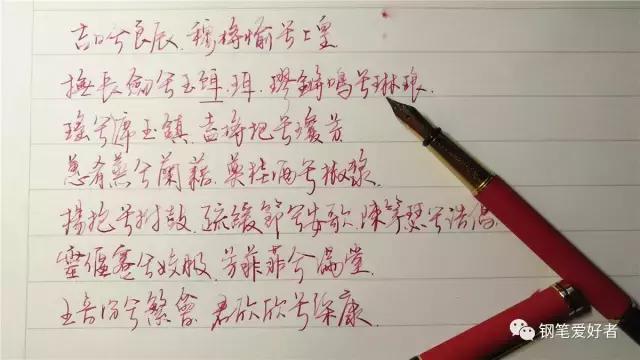 吉日兮良辰.穆將愉兮上皇
撫長劍兮玉鉺.珥.璆鏘鳴兮琳琅.
瑤兮席玉鎮.盍將把兮瓊芳
蕙肴蒸兮蘭藉.奠桂酒兮椒漿.
揚枹兮拊鼓.疏緩節兮安歌.陳竽瑟兮浩倡.
靈偃蹇兮姣服.芳菲菲兮滿堂.
五音紛兮繁會.君欣欣兮樂康.
钢笔爱好者